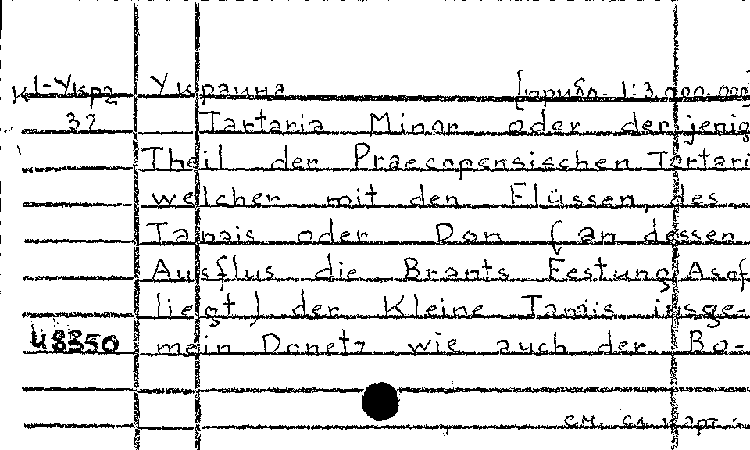 К1-Укра Украина [прибл. 1:3.000.000]
32 Tartaria Minor oder derjenig
Theil der Praecopensischen Tartari
welcher mit den Flüssen, des
Tanais oder Don (an dessen
Ausflus die Brants Festung Asof
liegt) der Kleine Tamis insge-
48350 mein Donetz wie auch der Bo-
см. сл. карт.